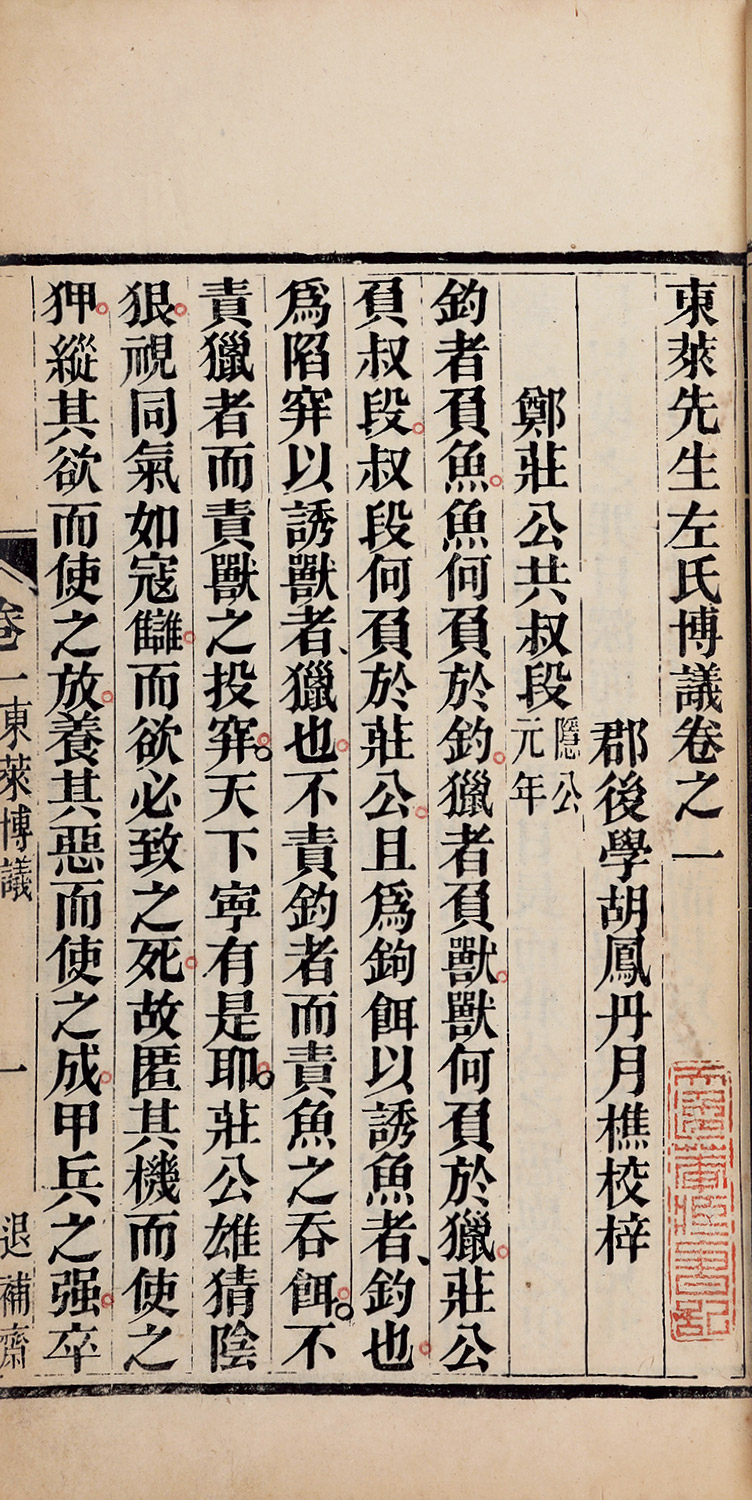 東萊先生左氏博議卷之一
郡後學胡鳳丹月樵校梓
鄭莊公共叔段隱公元年
釣者負魚魚何負於釣獵者負獸獸何負於獵莊公
負叔段叔段何負於莊公且爲鉤餌以誘魚者釣也
爲陷穽以誘獸者獵也不責釣者而責魚之吞餌不
責獵者而責獸之投穽天下寧有是耶莊公雄猜陰
狠視同氣如寇讎而欲必致之死故匿其機而使之
狎縱其欲而使之放養其惡而使之成甲兵之强卒
卷一東萊博議
一
退補齋